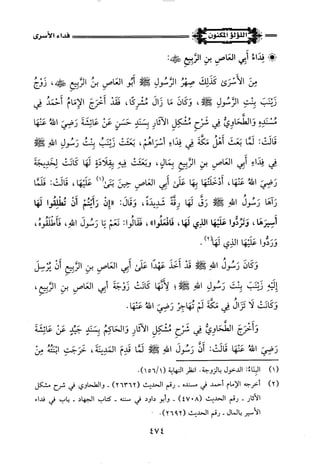 اللؤلؤ المكنون
فداء الأسرى
فِدَاءُ أَبِي العَاصِ بنِ الرَّبِيعِ ﷺ:
مِنَ الأَسْرَى كَذَلِكَ صِهْرُ الرَّسُولِ ﷺ أَبُو العَاصِ بنُ الرَّبِيعِ ﷺ، زَوْجُ
زَيْنَبَ بِنْتِ الرَّسُولِ ﷺ، وَكَانَ مَا زَالَ مُشْرِكًا، فَقَدْ أَخْرَجَ الإِمَامُ أَحْمَدُ فِي
مُسْنَدِهِ وَالطَّحَاوِيُّ فِي شَرْحِ مُشْكِلِ الآثَارِ بِسَنَدٍ حَسَنٍ عَنْ عَائِشَةَ رَضِيَ اللهُ عَنْهَا
قَالَتْ: لَمَّا بَعَثَ أَهْلُ مَكَّةَ فِي فِدَاءِ أَسْرَاهُمْ، بَعَثَتْ زَيْنَبُ بِنْتُ رَسُولِ اللهِ ﷺ
فِي فِدَاءِ أَبِي العَاصِ بنِ الرَّبِيعِ بِمَالٍ، وَبَعَثَتْ فِيهِ بِقِلَادَةٍ لَهَا كَانَتْ لِخَدِيجَةَ
رَضِيَ اللهُ عَنْهَا، أَدْخَلَتْهَا بِهَا عَلَى أَبِي العَاصِ حِينَ بَنَى(١) عَلَيْهَا، قَالَتْ: فَلَمَّا
رَآهَا رَسُولُ اللهِ ﷺ رَقَّ لَهَا رِقَّةً شَدِيدَةً، وَقَالَ: «إِنْ رَأَيْتُمْ أَنْ تُطْلِقُوا لَهَا
أَسِيرَهَا، وَتَرُدُّوا عَلَيْهَا الَّذِي لَهَا، فَافْعَلُوا»، فَقَالُوا: نَعَمْ يَا رَسُولَ اللهِ، فَأَطْلَقُوهُ،
وَرَدُّوا عَلَيْهَا الَّذِي لَهَا(٢).
وَكَانَ رَسُولُ اللهِ ﷺ قَدْ أَخَذَ عَهْدًا عَلَى أَبِي العَاصِ بنِ الرَّبِيعِ أَنْ يُرْسِلَ
إِلَيْهِ زَيْنَبَ بِنْتَ رَسُولِ اللهِ ﷺ؛ لِأَنَّهَا كَانَتْ زَوْجَةَ أَبِي العَاصِ بنِ الرَّبِيعِ،
وَكَانَتْ لَا تَزَالُ فِي مَكَّةَ لَمْ تُهَاجِرْ رَضِيَ اللهُ عَنْهَا.
وَأَخْرَجَ الطَّحَاوِيُّ فِي شَرْحِ مُشْكِلِ الآثَارِ وَالحَاكِمُ بِسَنَدٍ جَيِّدٍ عَنْ عَائِشَةَ
رَضِيَ اللهُ عَنْهَا قَالَتْ: أَنَّ رَسُولَ اللهِ ﷺ لَمَّا قَدِمَ المَدِينَةَ، خَرَجَتِ ابْنَتُهُ مِنْ
(١) البِنَاءُ: الدخول بالزوجة. انظر النهاية (١/١٥٦).
(٢) أخرجه الإمام أحمد في مسنده - رقم الحديث (٢٦٣٦٢) - والطحاوي في شرح مشكل
الآثار - رقم الحديث (٤٧٠٨) - وأبو داود في سننه - كتاب الجهاد - باب في فداء
الأسير بالمال - رقم الحديث (٢٦٩٢).
٤٧٤